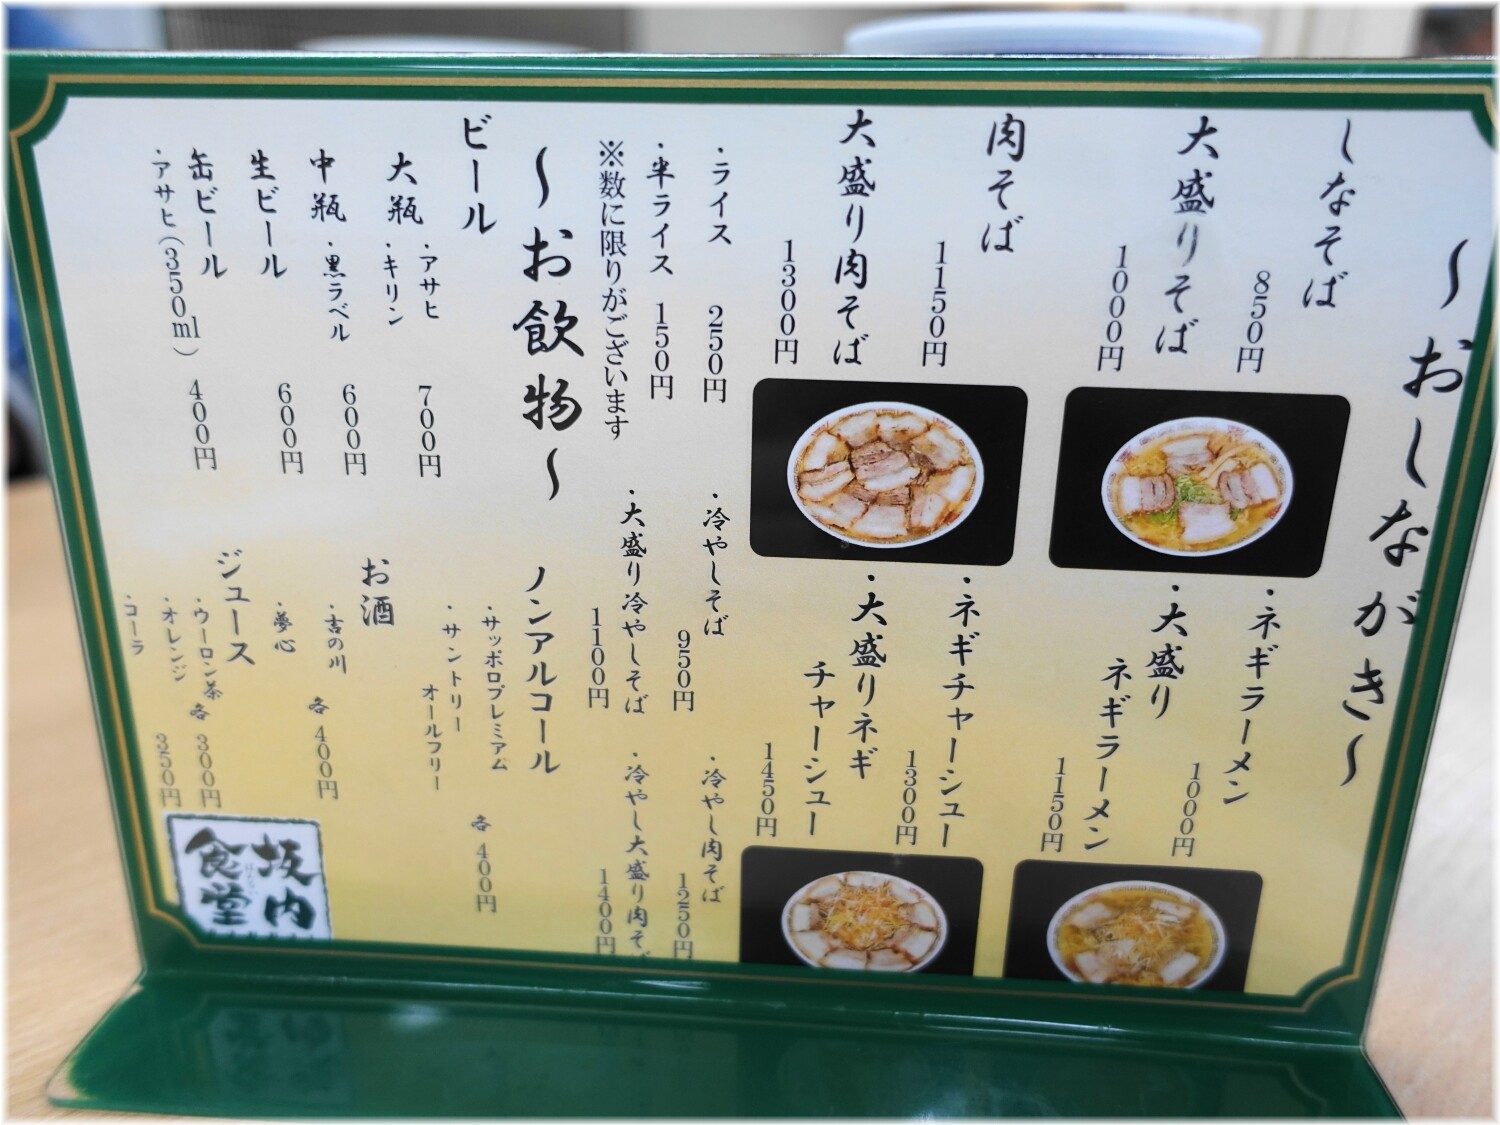 〜おしながき〜
しなそば
850円
大盛りそば
1000円
・ネギラーメン
1000円
・大盛り
ネギラーメン
1150円
肉そば
1150円
大盛り肉そば
1300円
・ネギチャーシュー
1300円
・大盛りネギ
チャーシュー
1450円
・ライス 250円
・半ライス 150円
※数に限りがございます
・冷やしそば
950円
・大盛り冷やしそば
1100円
・冷やし肉そば
1250円
・冷やし大盛り肉そば
1400円
〜お飲物〜
ビール
大瓶
・アサヒ
・キリン
700円
中瓶
・黒ラベル
600円
生ビール
600円
缶ビール
・アサヒ(350ml)
400円
ノンアルコール
・サッポロプレミアム
・サントリー
オールフリー
各 400円
お酒
・吉の川
・夢心
各 400円
ジュース
・ウーロン茶
・オレンジ
・コーラ
各 300円
350円
坂内
ばんない
食堂